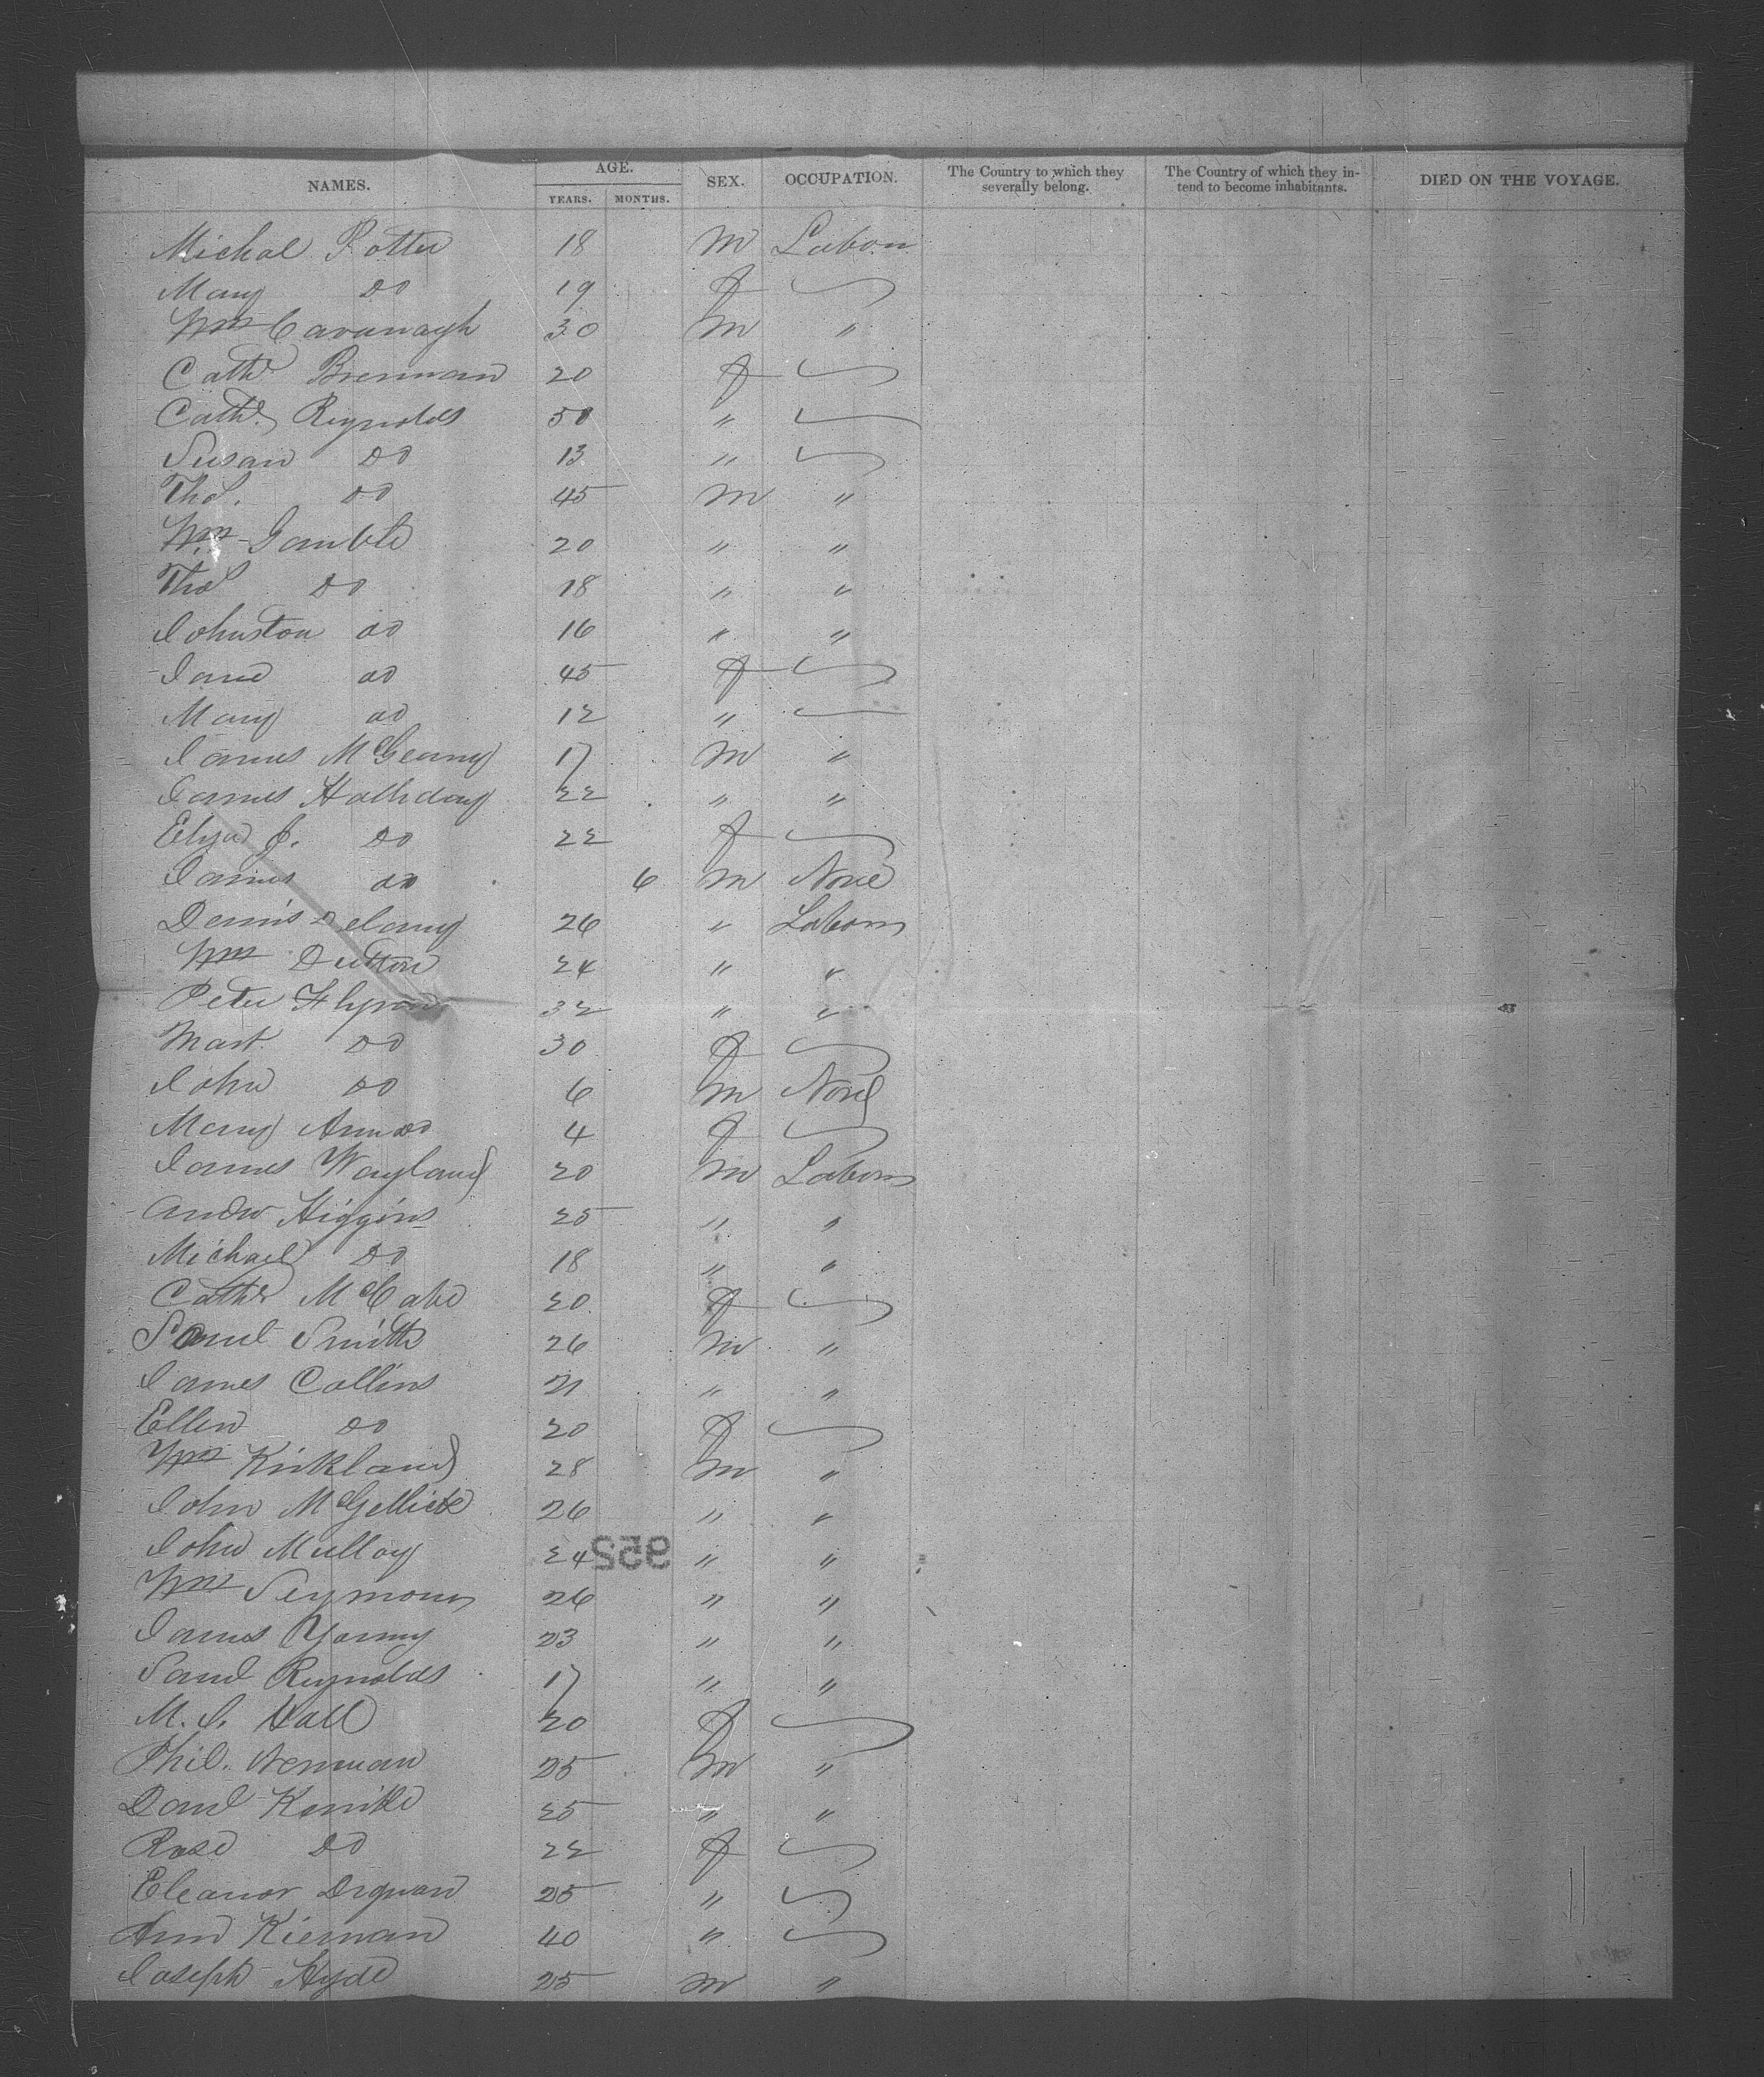 NAMES. AGE. SEX. OCCUPATION. The Country to which they severally belong. The Country of which they intend to become inhabitants. DIED ON THE VOYAGE.
YEARS. MONTHS.
Michal Potter 18 M Labor
Mary Do 19 f
Wm Cavanagh 30 M "
Cathe Brennan 20 f
Cathe Reynolds 50 "
Susan Do 13 "
Thos. Do 45 M "
Wm Gamble 20 " "
Thos Do 18 " "
Johnston do 16 " "
Jane do 45 f
Mary do 12 "
James McGeany 17 M "
James Halliday 22 " "
Eliza J. Do 22 f
James do 6 M None
Dennis Delany 26 " Labor
Wm Dutton 24 " "
Peter Flynn 32 " "
Mart. Do 30 f
John Do 6 M None
Mary Ann do 4 f
James Wayland 20 M Labor
Andw Higgins 25 " "
Michael Do 18 " "
Cathe McCabe 20 f
Saml Smith 26 M "
James Collins 21 " "
Ellen Do 20 f
Wm Kirkland 28 M "
John 26 " "
John Mulloy 24 " "
952
Wm Seymour 26 " "
James Young 23 " "
Saml Reynolds 17 " "
M. J. Hall 20 f
Phil. 25 M "
Danl 25 " "
Rose Do 22 f
Eleanor 25 "
Ann Kiernan 40 "
Joseph Hyde 25 M "